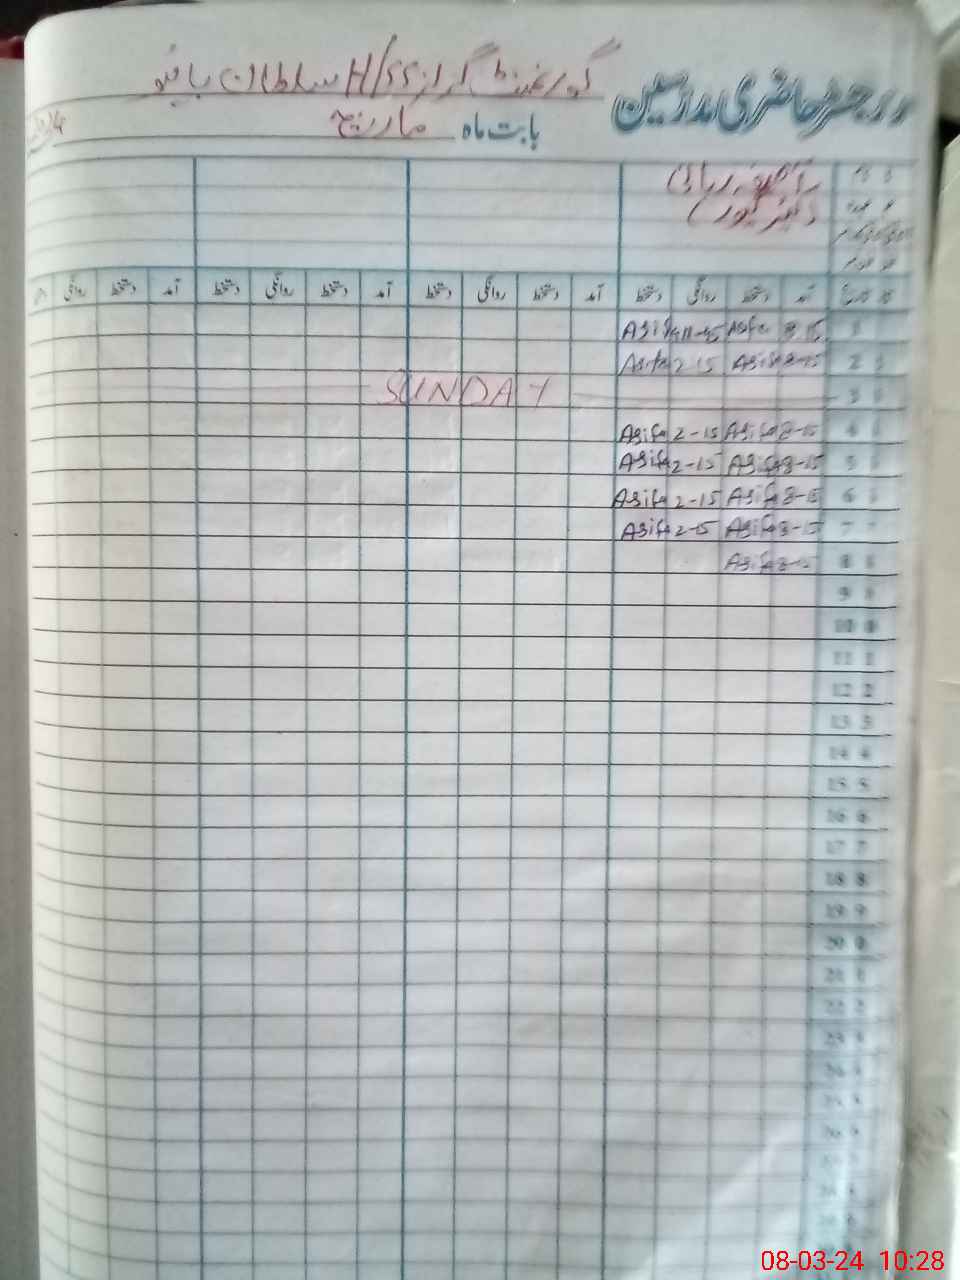 رجسٹر حاضری مدرسین گورنمنٹ گرلز H/SS سلطان
بابت ماہ مارچ
آمد دستخط روانگی دستخط آمد دستخط روانگی دستخط آمد دستخط روانگی دستخط آمد دستخط روانگی
1 8.15 Asifa 11-45 Asifa
2 8-15 Asifa 2-15 Asifa
3 SUNDAY
4 8-15 Asifa 2-15 Asifa
5 8-15 Asifa 2-15 Asifa
6 8-15 Asifa 2-15 Asifa
7 8-15 Asifa 2-15 Asifa
8 8-15 Asifa
9
10
11
12
13
14
15
16
17
18
19
20
21
22
23
08-03-24 10:28